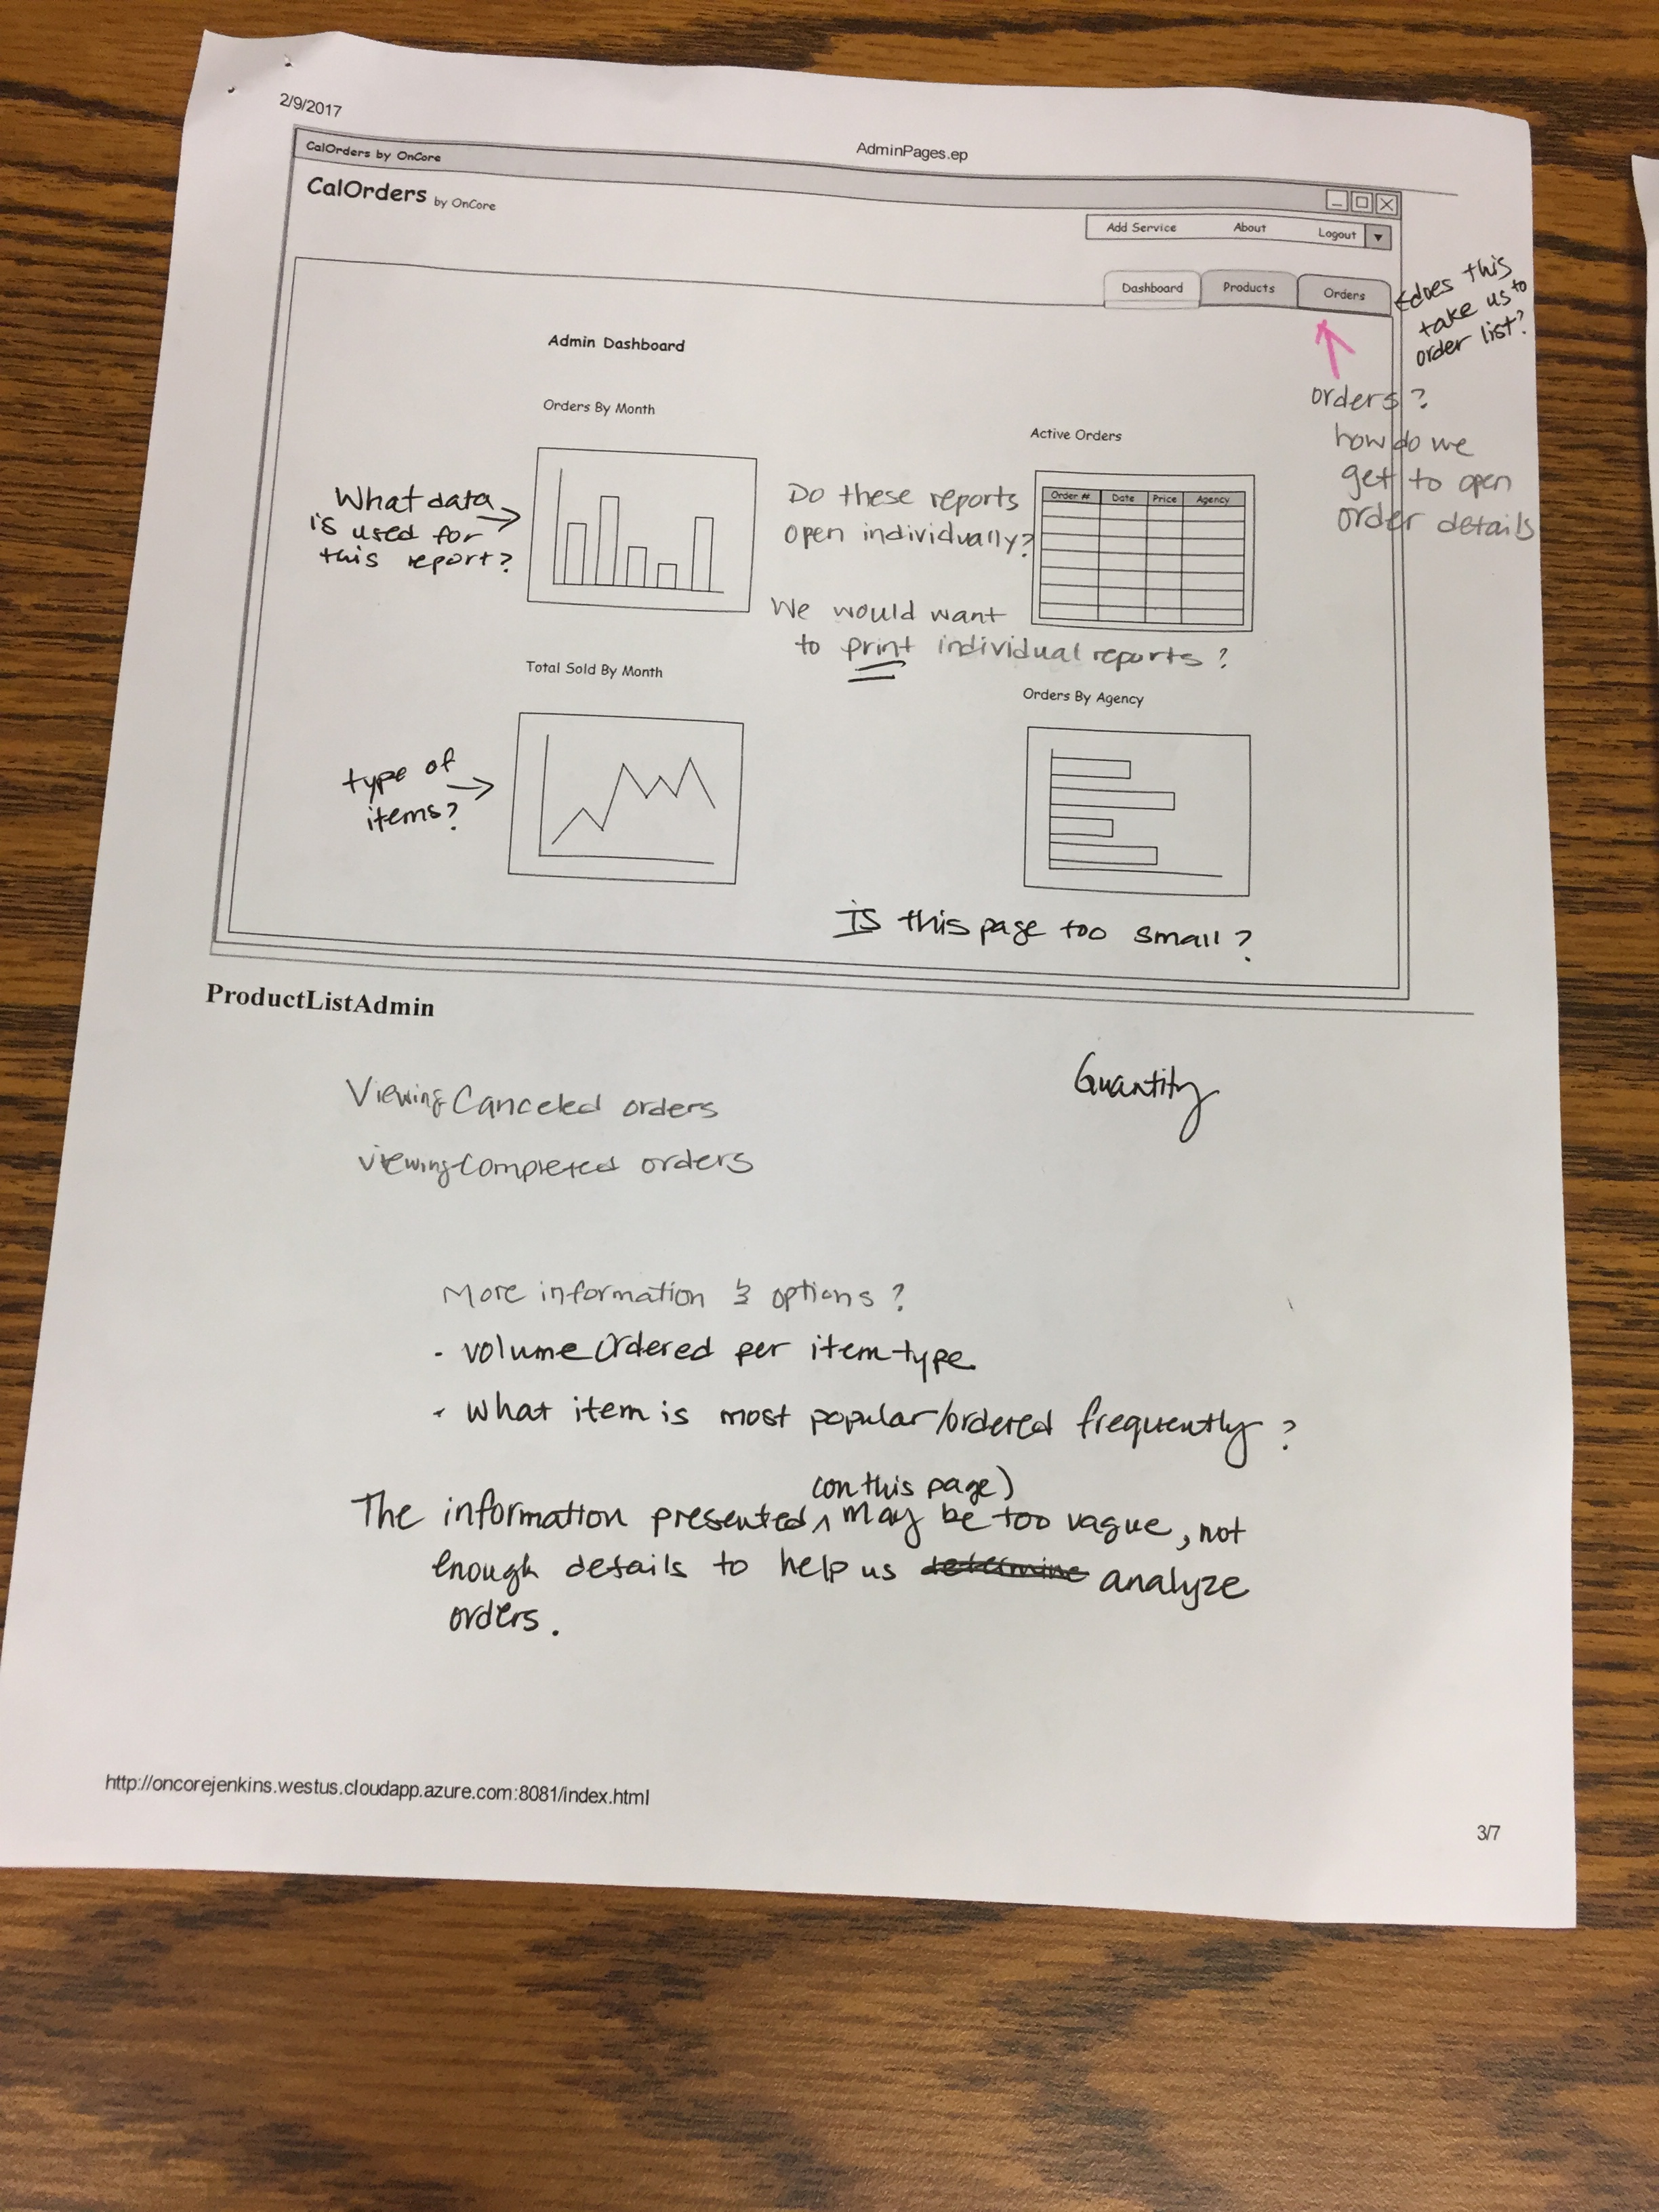 2/9/2017
AdminPages.ep
CalOrders by OnCore
CalOrders by OnCore
Add Service About Logout
Dashboard Products Orders
←does this
take us to
order list?
orders?
how do we
get to open
order details
Admin Dashboard
Orders By Month
What data
is used for
this report?
Do these reports
open individually?
Active Orders
Order # Date Price Agency
We would want
to print individual reports?
Total Sold By Month
type of
items?
Orders By Agency
Is this page too small?
ProductListAdmin
Viewing Canceled orders
Quantity
viewing completed orders
More information & options?
- volume ordered per item type
- What item is most popular/ordered frequently?
(on this page)
The information presented ^ may be too vague, not
enough details to help us determine analyze
orders.
http://oncorejenkins.westus.cloudapp.azure.com:8081/index.html
3/7